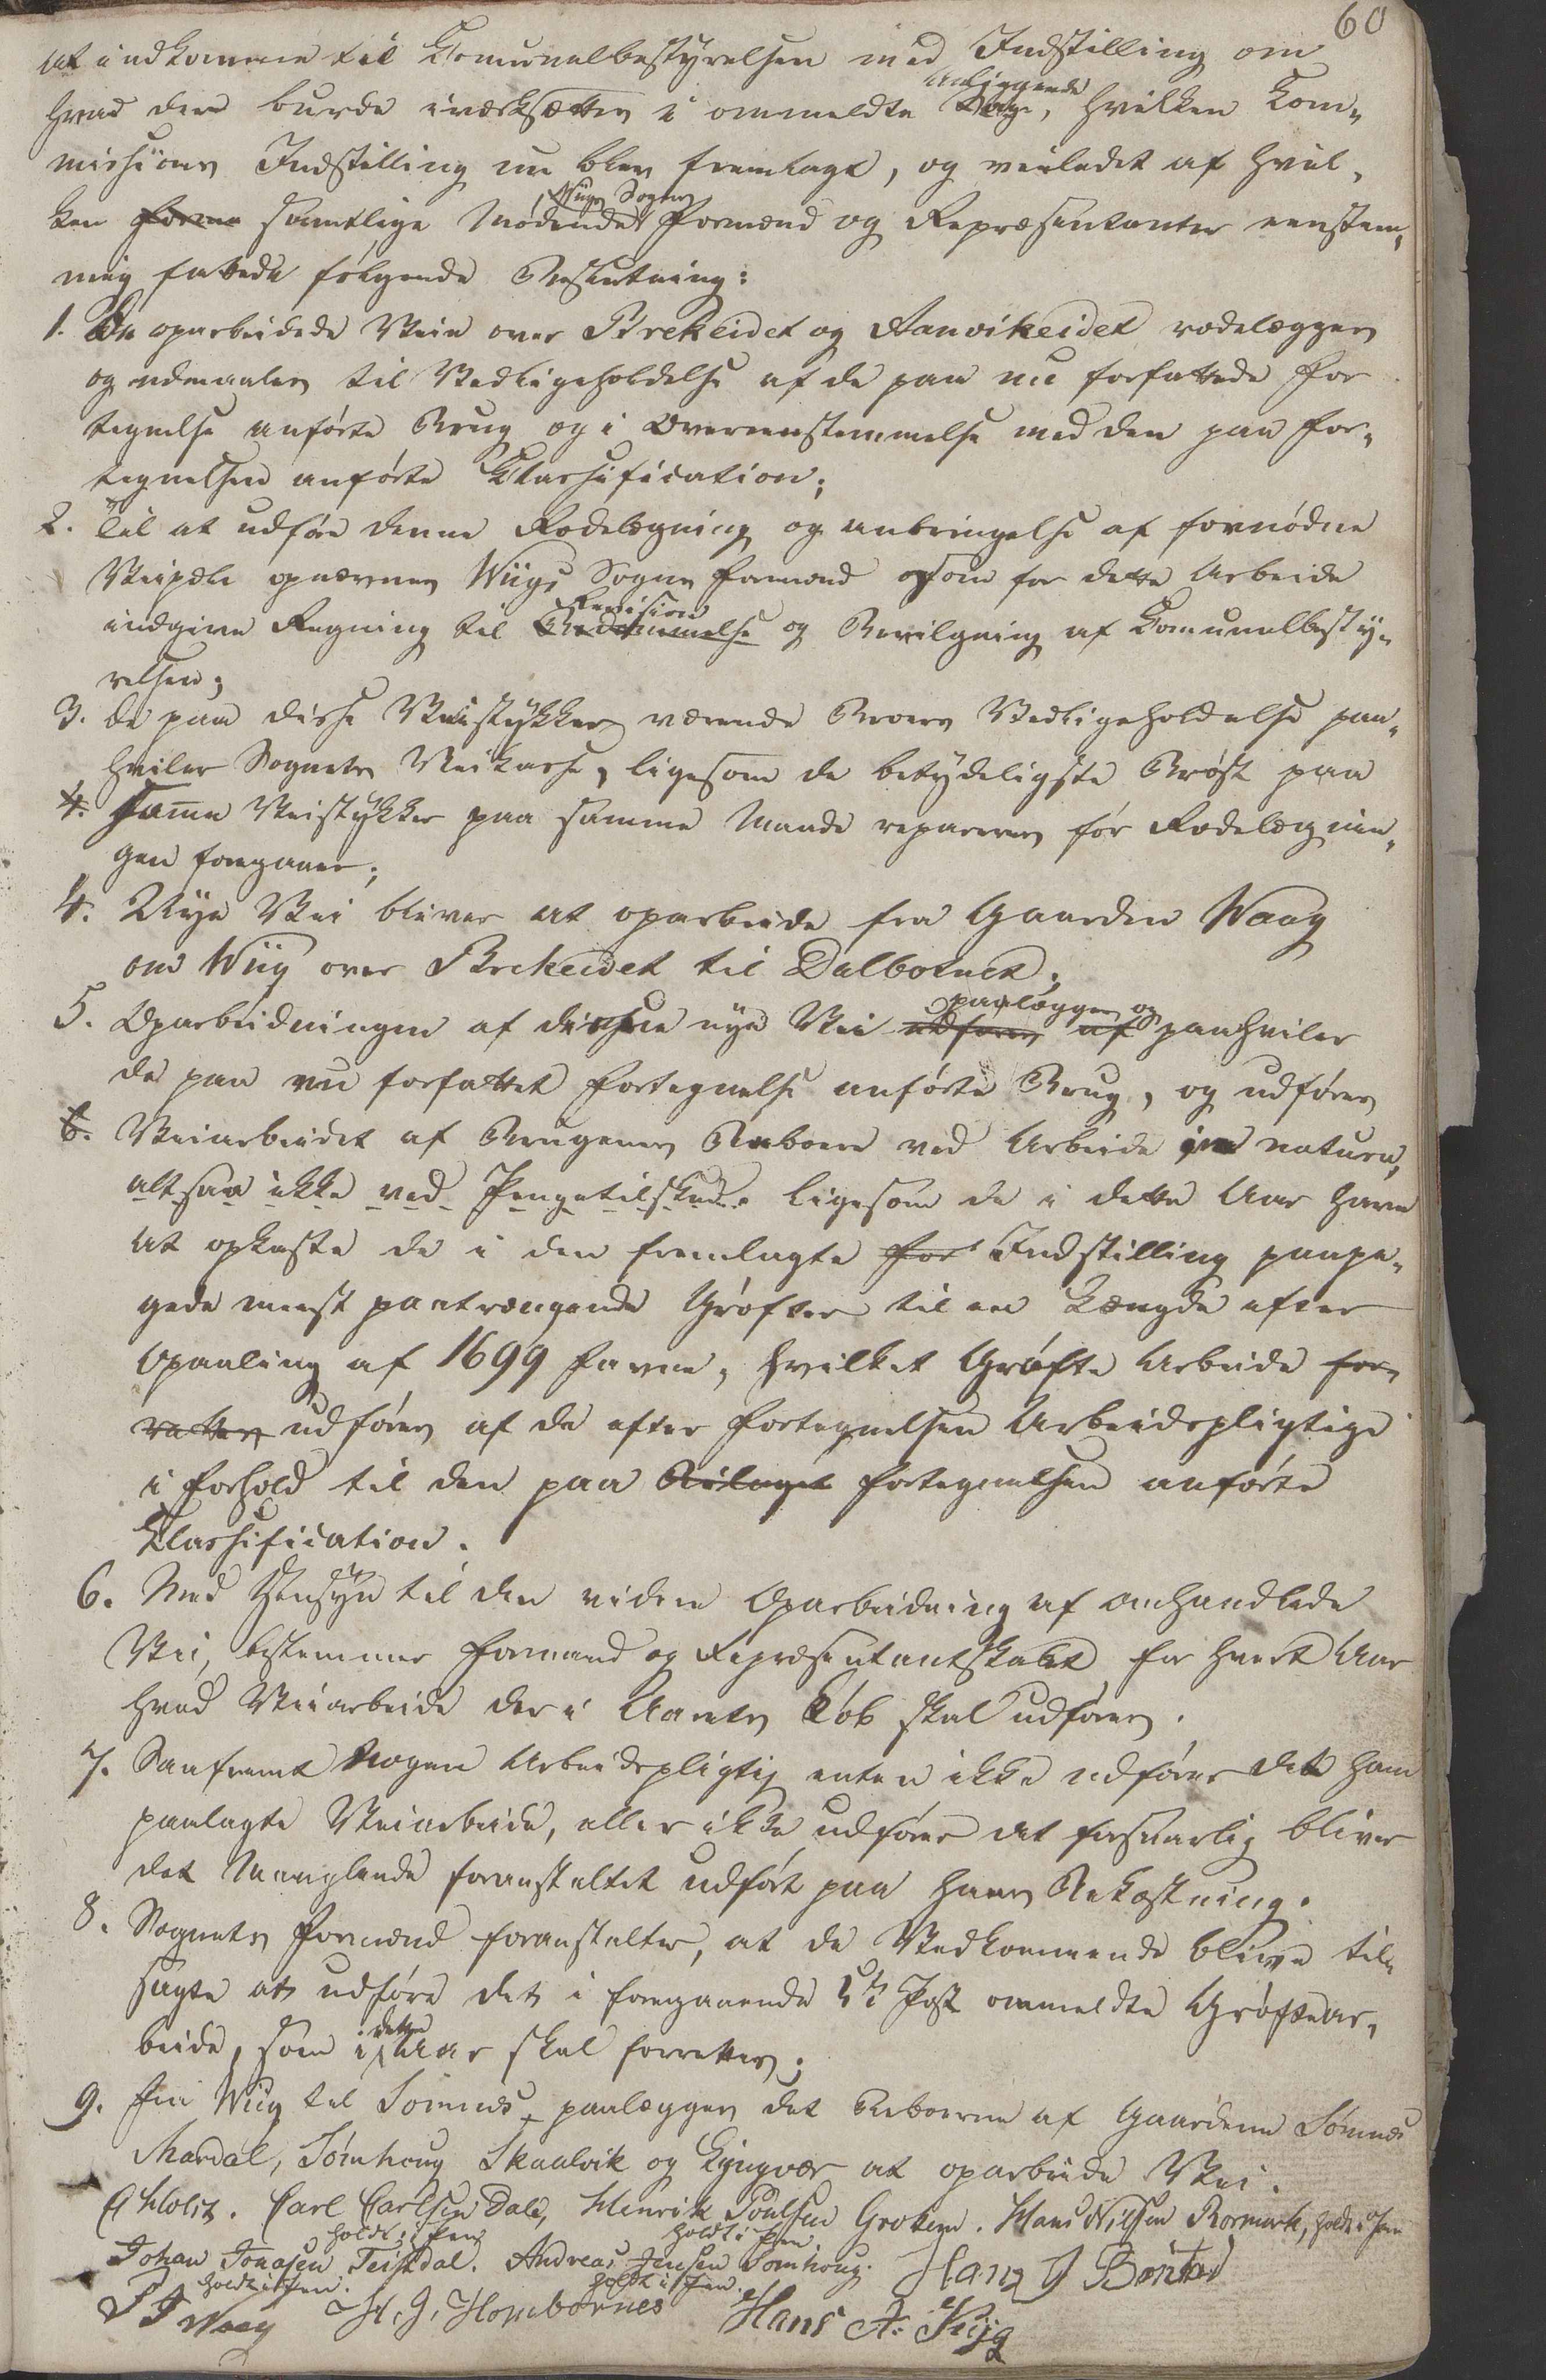 60
at indkomme til Comunalbestyrelsen med Indstilling om
hvad der burde iværksættes i ommeldte anliggende Sag, hvilken Com-
missions Indstilling nu blev fremlagt, og veiledet af hvil-
ken forme samtlige Mødende Wiigs Sogns Formænd og Repræsentanter eenstem-
mig fattede følgende Beslutning:
1. De oparbeidede Veie over Brekeidet og Aanvikeidet rodelægges
og udmaales til Vedligeholdelse af de paa nu forfattede For-
tegnelse anførte Brug og i Overeenstemmelse med den paa For-
tegnelsen anførte Klassification;
2. Til at udføre denne Rodelægning og anbringelse af fornødne
Veipæle opnævnes Wiigs Sogns Formænd som for dette Arbeide
indgive Regning til Bedømmelse Revision og Bevilgning af Comunalbesty-
relsen;
3. De paa disse Veistykker værende Broers Vedligeholdelse paa-
hviler Sognets Veikasse, ligesom de betydeligste Brøst paa
4. samme Veistykker paa samme Maade repareres før Rodelægnin-
gen foregaaer;
4. Nye Vei bliver at oparbeide fra Gaarden Waag
om Wiig over Brekeidet til Dalbotnet;
5. Oparbeidningen af denne nye Vei udføres af paalægges og paahviler
de paa nu forfattet Fortegnelse anførte Brug, og udføres
6. Veiarbeidet af Brugenes Beboere ved Arbeide in natura,
altsaa ikke ved Pengetilskud. ligesom de i dette Aar have
at opkaste de i den fremlagte For Indstilling paape-
gede meest paatrængende Grøfter til en Længde efter
Opmaaling af 1699 Favne, hvilket Grøfte Arbeide for-
rettes udføres af de efter Fortegnelsen Arbeidspligtige
i Forhold til den paa Bilaget Fortegnelsen anførte
Klassification.
6. Med Hensyn til den videre Oparbeidning af omhandlede
Vei, bestemmer Formænd og Repræsentantskabet for hvert Aar
hvad Veiarbeide der i Aarets Løb skal udføres.
7. Saafremt Nogen Arbeidspligtig enten ikke udfører det ham
paalagte Veiarbeide, eller ikke udfører det forsvarlig bliver
det Manglende foranstaltet udført paa hans Bekostning.
8. Sognets Formænd foranstalter, at de Vedkommende blive til-
sagte at udføre det i foregaaende 5te Post ommeldte Grøftear-
beide, som i dette Aar skal forrettes;
9. Fra Wiig til Sømnes paalægges det Beboerne af Gaardene Sømnes
Mardal, Sømhoug Skaalvik og Lyngvær at oparbeide Vei.
C Holst. Carl Carlsen Dale, Henrik Poulsen Grotem. Hans Nilsen Rormark, holdt i Pen
holdt i Pen holdt i Pen
Johan Jonasen Teistdal. Andreas Jensen Sømhoug. Hans J Bøntad
holdt i Pen. holdt i Pen.
P J Waag H. J. Hombornes Hans A. Wiig